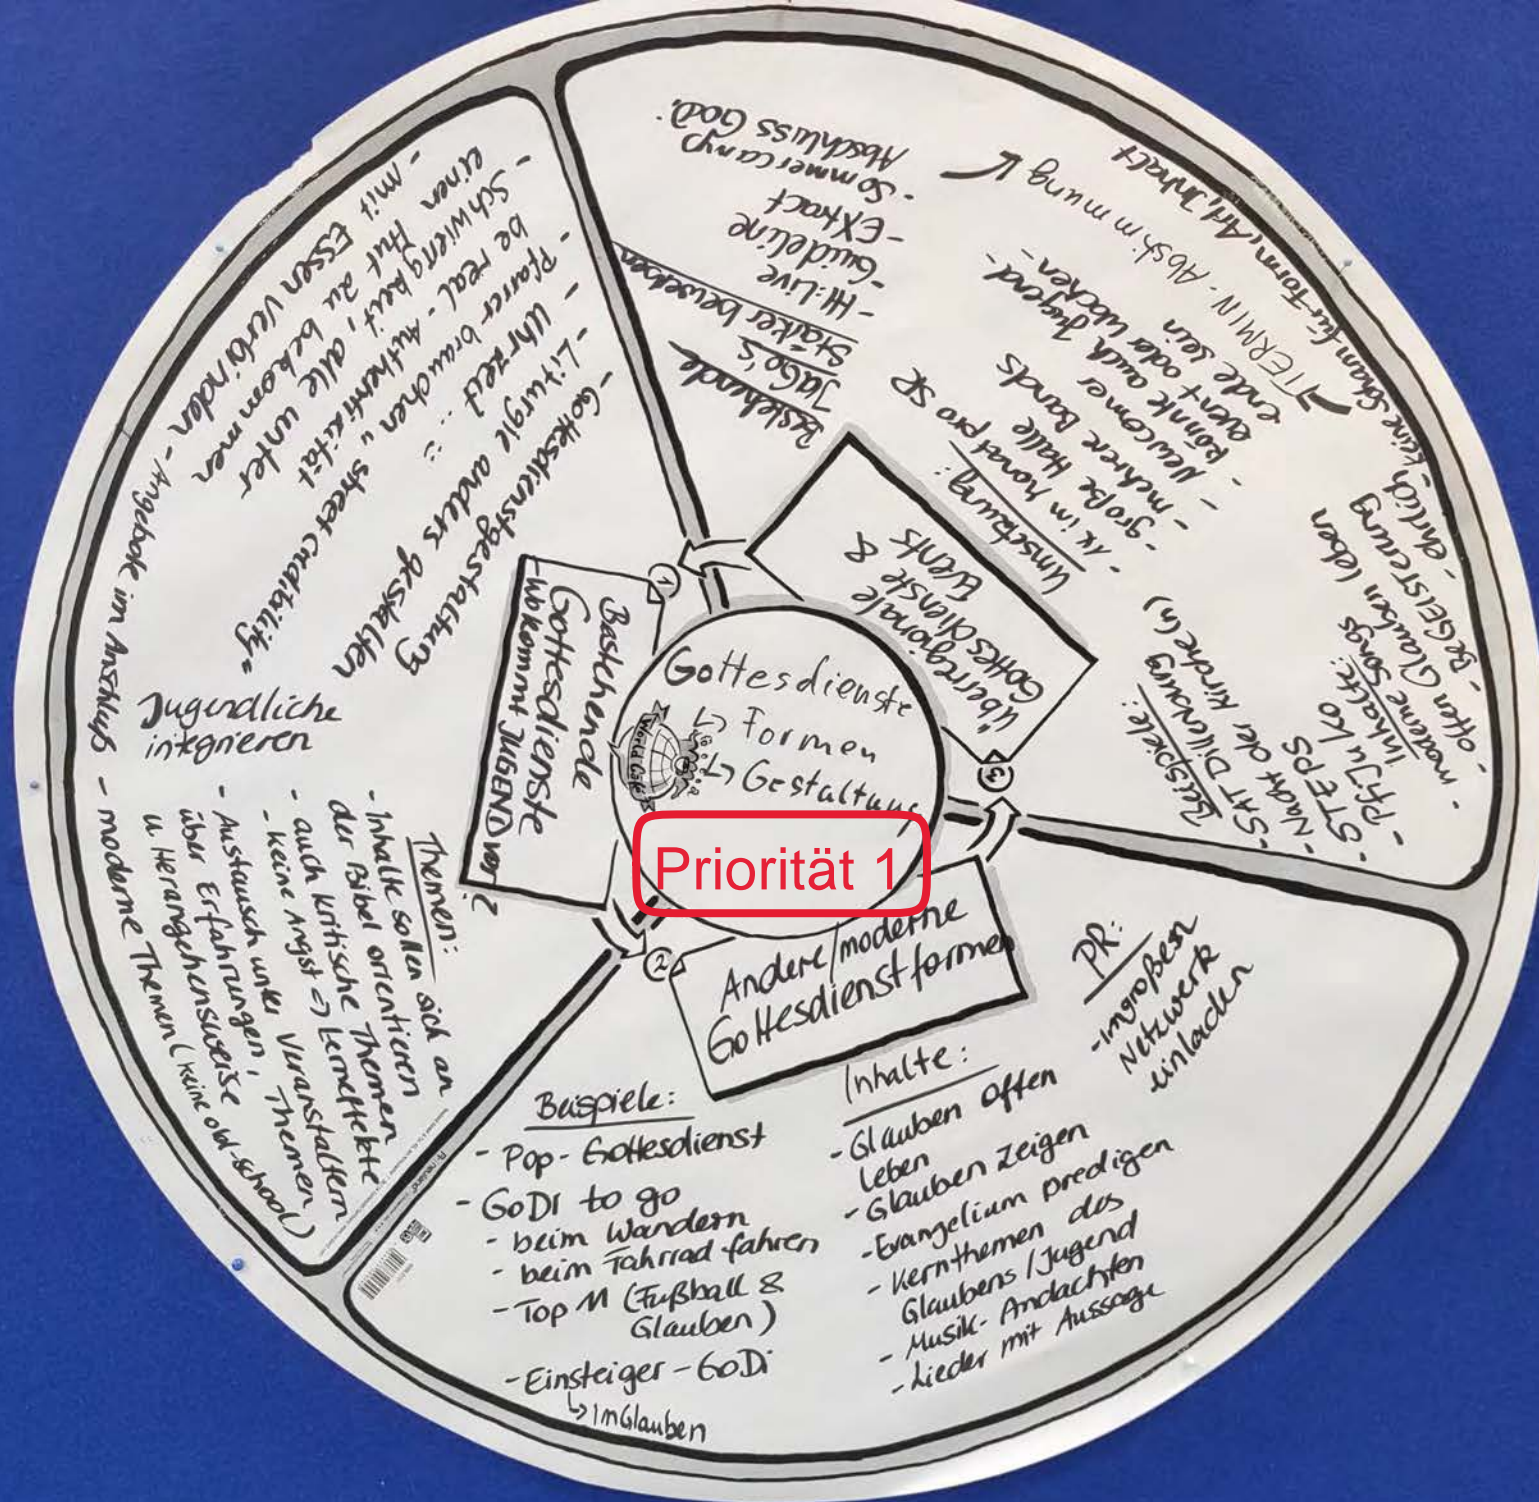 Gottesdienste
↳ Formen
↳ Gestaltung
World Café
Priorität 1
①
Bestehende
Gottesdienste
- wo kommt JUGEND vor?
- Gottesdienstgestaltung
- Liturgie anders gestalten
- Uhrzeit..::
- Pfarrer brauchen „street credibility“
be real - Authentizität
- Schwierigkeit, alle unter
einen Hut zu bekommen
- mit Essen verbinden
- Angebote im Anschluß
Jugendliche
integrieren
Themen:
- Inhalte sollen sich an
der Bibel orientieren
- auch kritische Themen
- keine Angst => Lerneffekte
- Austausch unter Veranstaltern
über Erfahrungen, Themen
u. Herangehensweise
- moderne Themen (keine old-school)
②
Andere/moderne
Gottesdienstformen
Beispiele:
- Pop-Gottesdienst
- GoDi to go
- beim Wandern
- beim Fahrrad fahren
- Top M (Fußball &
Glauben)
- Einsteiger-GoDi
↳ im Glauben
Inhalte:
- Glauben offen
leben
- Glauben zeigen
- Evangelium predigen
- Kernthemen des
Glaubens/Jugend
- Musik-Andachten
- Lieder mit Aussage
PR:
- im großen
Netzwerk
einladen
③
Überregionale
Gottesdienste &
Events
Bestehende
JuGo's
Stärker bewerben
- HI:Live
- Guideline
- EXtract
- Sommercamp
Abschluss GoD.
Umsetzung:
- 1x im Monat pro SR
- große Halle
- mehrere Bands
- Newcomer
- könnte auch Jugend-
event oder Wochen-
ende sein
→ TERMIN-Abstimmung
Beispiele:
- SAT Dillenburg
- Nacht der Kirche(n)
- STEPS
- PfiJuKo
Inhalte:
- moderne Songs
- offen Glauben leben
- BEGEISTERUNG
- ehrlich
- keine Scham für Form, Art, Inhalt